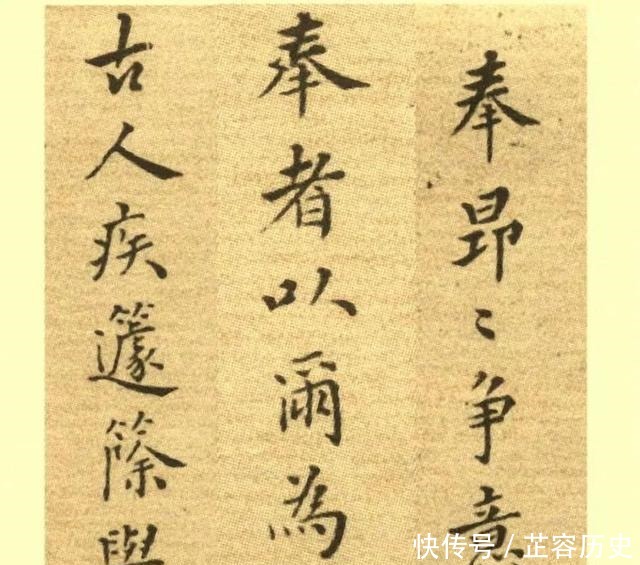 奉昂〻争意
奉者以爾為
古人疾籧篨與
快传号 / 芷容历史